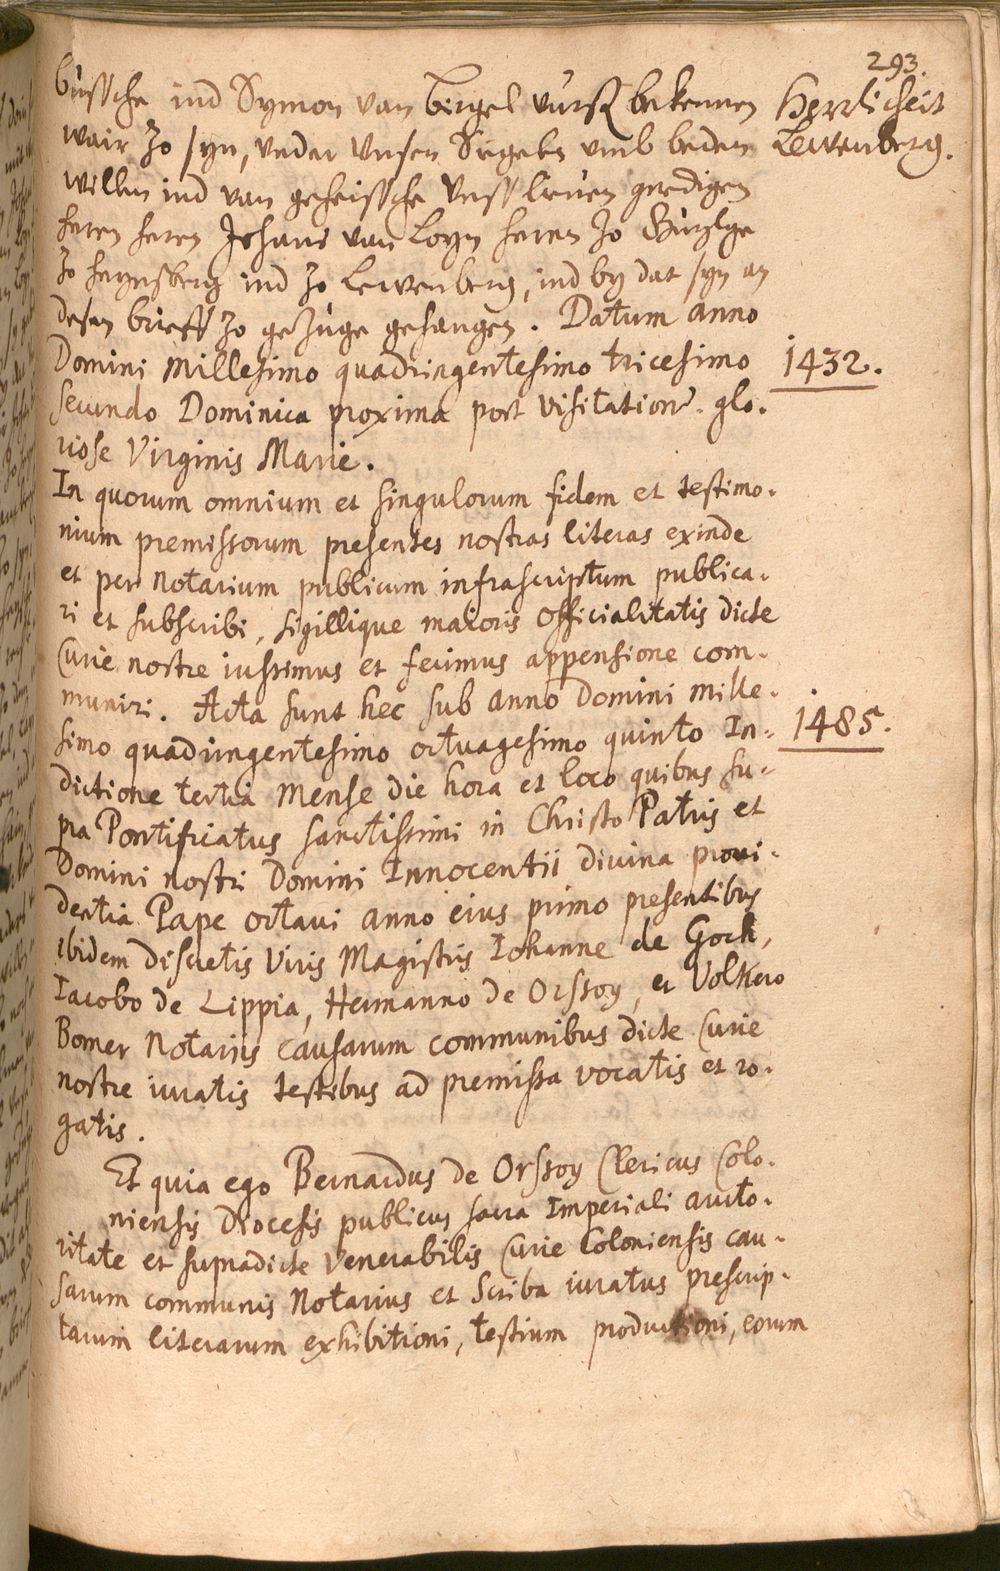 293.
büssche ind Symon van Birgel vurß bekennen
Herrlicheit
wair zo syn, under unsen Siegelen umb beden
Lewenberg.
willen ind van geheissche unss lieuen genedigen
heren heren Johans van Loyn heren zo Guylge
zo Heynsberg ind zo Lewenberg, ind by dat syn an
desen brieff zo gezuge gehangen. Datum anno
Domini Millesimo quadringentesimo tricesimo
1432.
secundo Dominica proxima post visitation. glo.
riose Virginis Marie.
In quorum omnium et singulorum fidem et testimo.
nium premissorum presentes nostras literas exinde
et per Notarium publicum infrascriptum publica.
ri et subscribi, sigillique maioris officialitatis dicte
Curie nostre iussimus et fecimus appensione com.
muniri. Acta sunt hec sub anno Domini mille.
simo quadringentesimo octuagesimo quinto In.
1485.
dictione tertia Mense die hora et loco quibus su.
pra Pontificatus sanctissimi in Christo Patris et
Domini nostri Domini Innocentii divina proui.
dentia Pape octaui anno eius primo presentibus
ibidem discretis Viris Magistris Iohanne de Goch,
Iacobo de Lippia, Hermanno de Orssoy, et Volkero
Bomer Notariis causarum communibus dicte Curie
nostre iuratis testibus ad premissa vocatis et ro.
gatis.
Et quia ego Bernardus de Orssoy Clericus Colo.
niensis Diocesis publicus sacra Imperiali aucto.
ritate et supradicte Venerabilis Curie Coloniensis cau.
sarum communis Notarius et Scriba iuratus prescrip.
tarum literarum exhibitioni, testium productioni, eorum